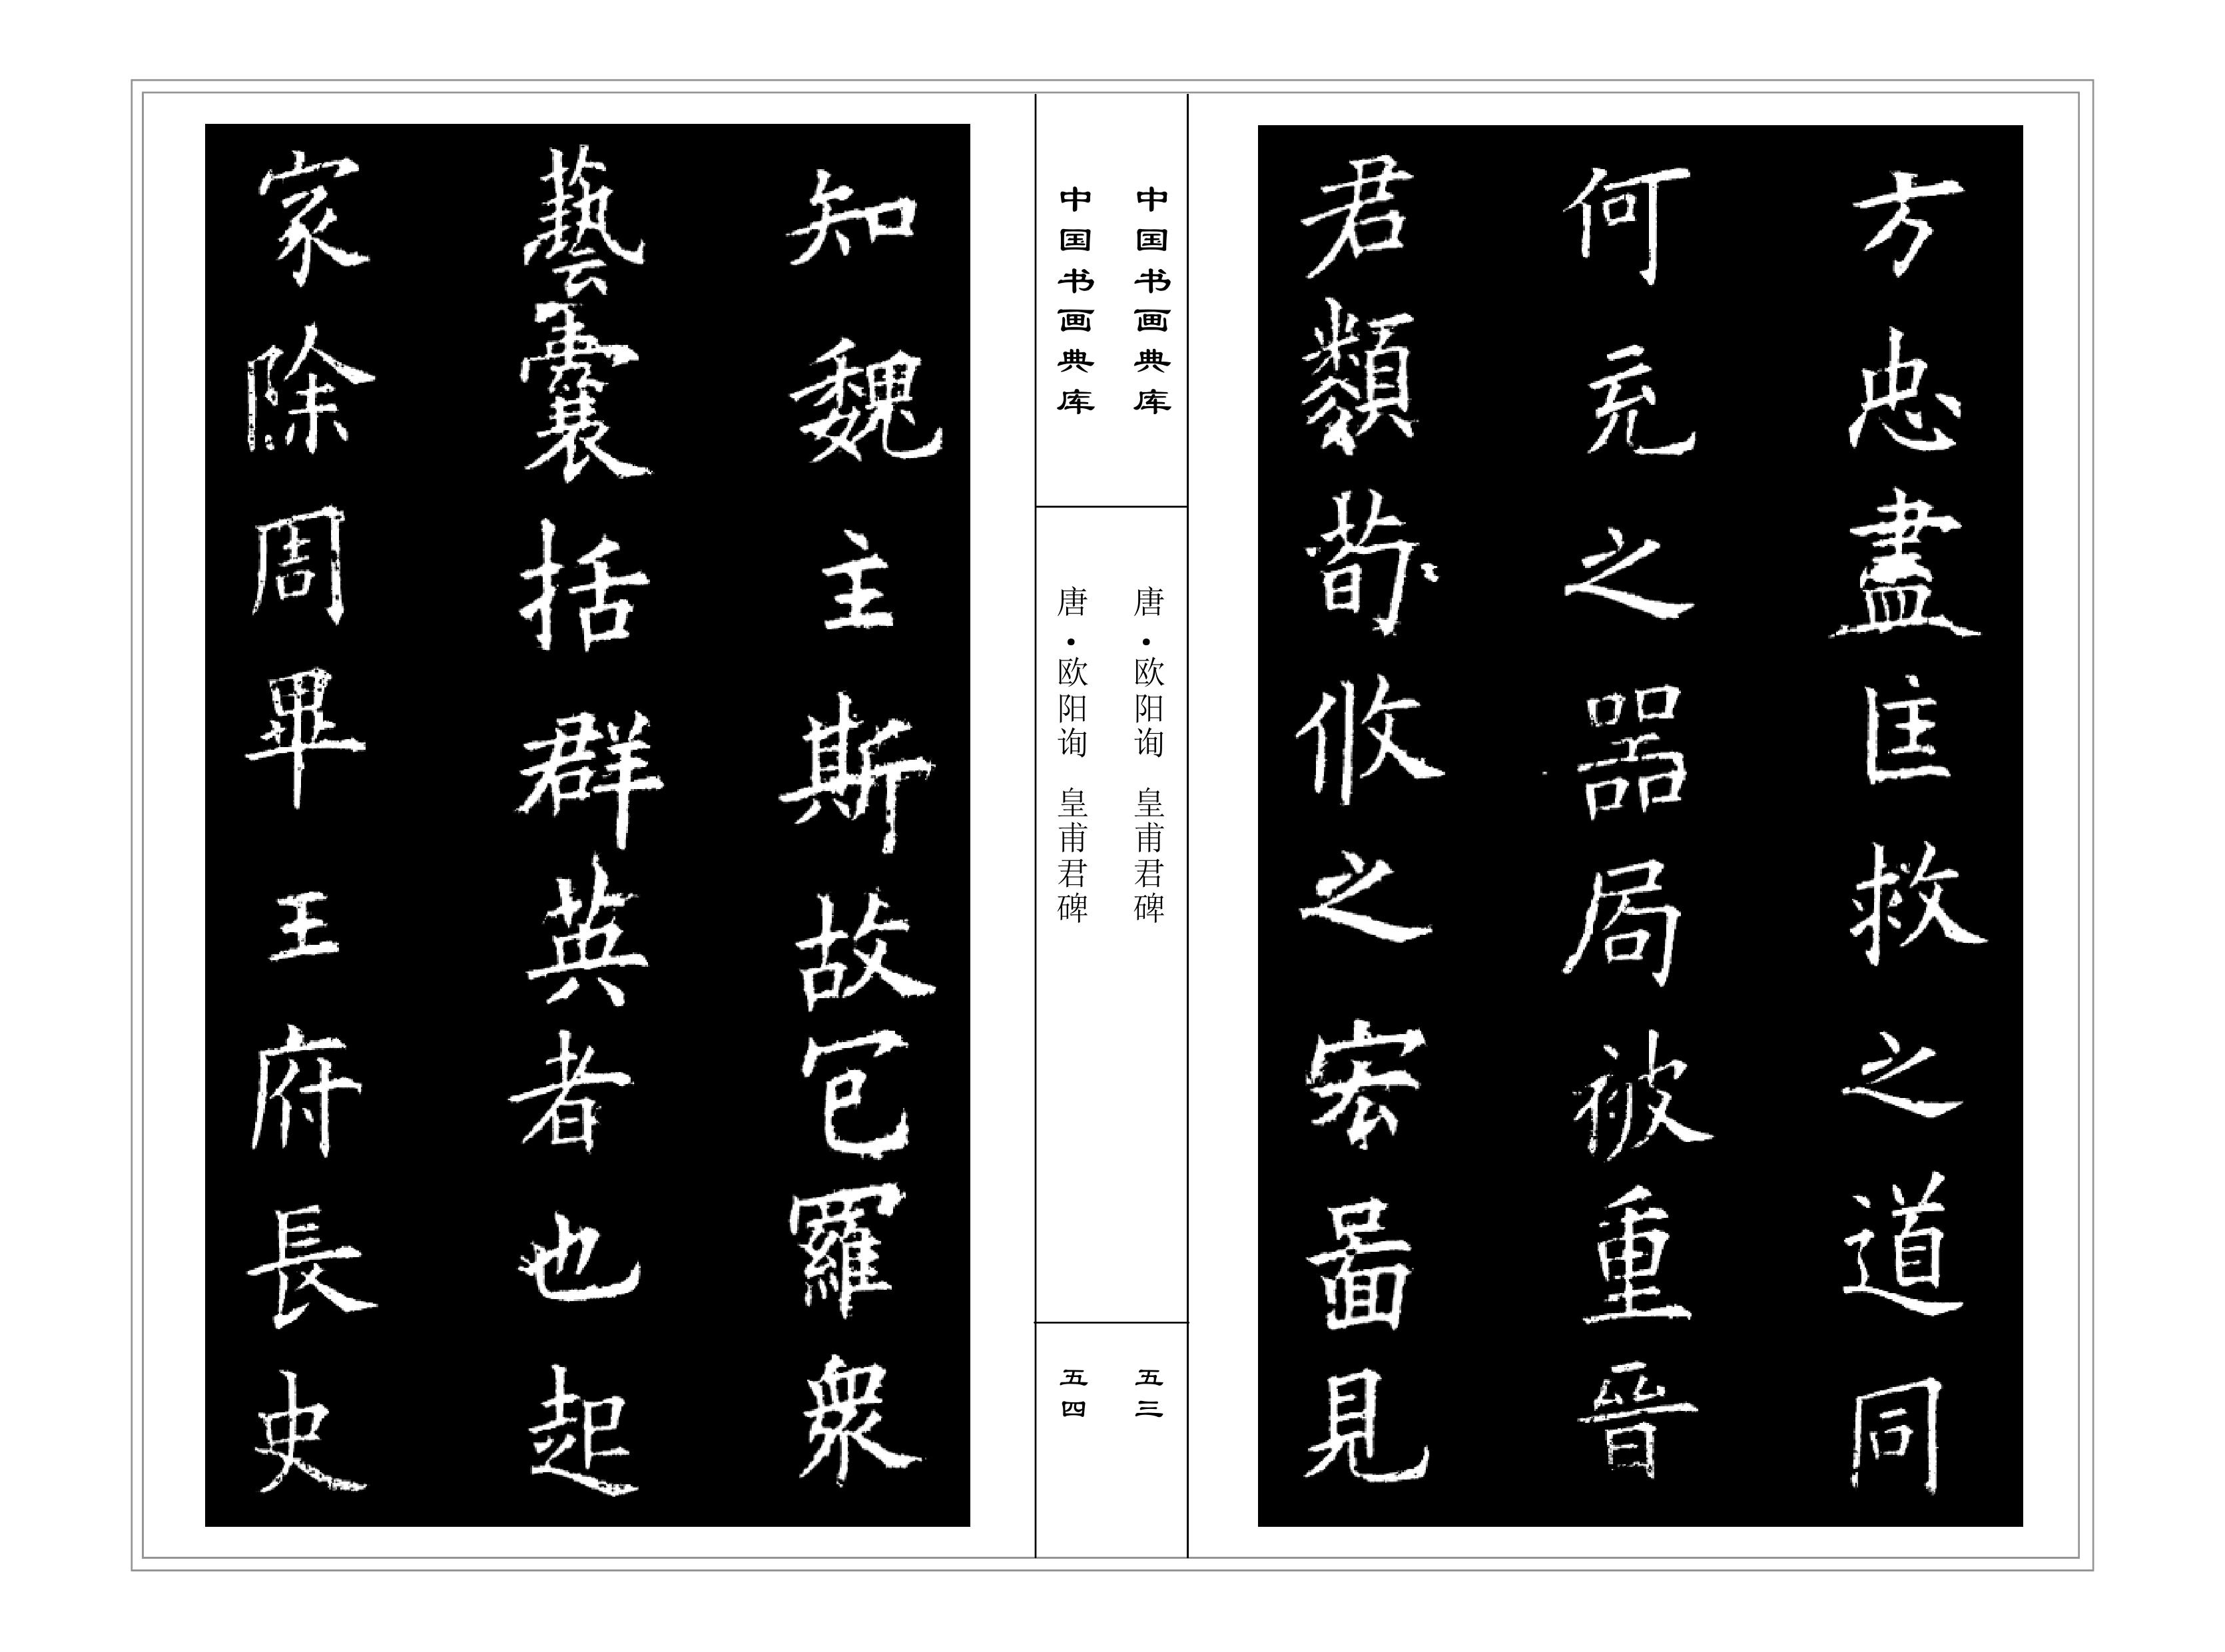 方忠盡匡救之道同
何充之器局被重晉
君類荀攸之宏圖見
中国书画典库
唐·欧阳询 皇甫君碑
五三
中国书画典库
唐·欧阳询 皇甫君碑
五四
知魏主斯故包羅衆
藝囊括群英者也起
家除周畢王府長史